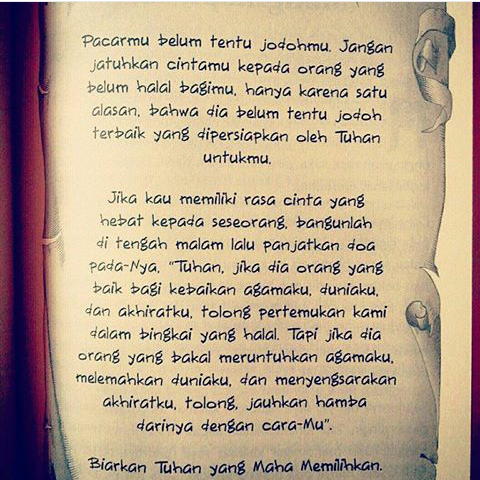 Pacarmu belum tentu jodohmu. Jangan
jatuhkan cintamu kepada orang yang
belum halal bagimu, hanya karena satu
alasan, bahwa dia belum tentu jodoh
terbaik yang dipersiapkan oleh Tuhan
untukmu.
Jika kau memiliki rasa cinta yang
hebat kepada seseorang, bangunlah
di tengah malam lalu panjatkan doa
pada-Nya, "Tuhan, jika dia orang yang
baik bagi kebaikan agamaku, duniaku,
dan akhiratku, tolong pertemukan kami
dalam bingkai yang halal. Tapi jika dia
orang yang bakal meruntuhkan agamaku,
melemahkan duniaku, dan menyengsarakan
akhiratku, tolong, jauhkan hamba
darinya dengan cara-Mu".
Biarkan Tuhan yang Maha Memilihkan.